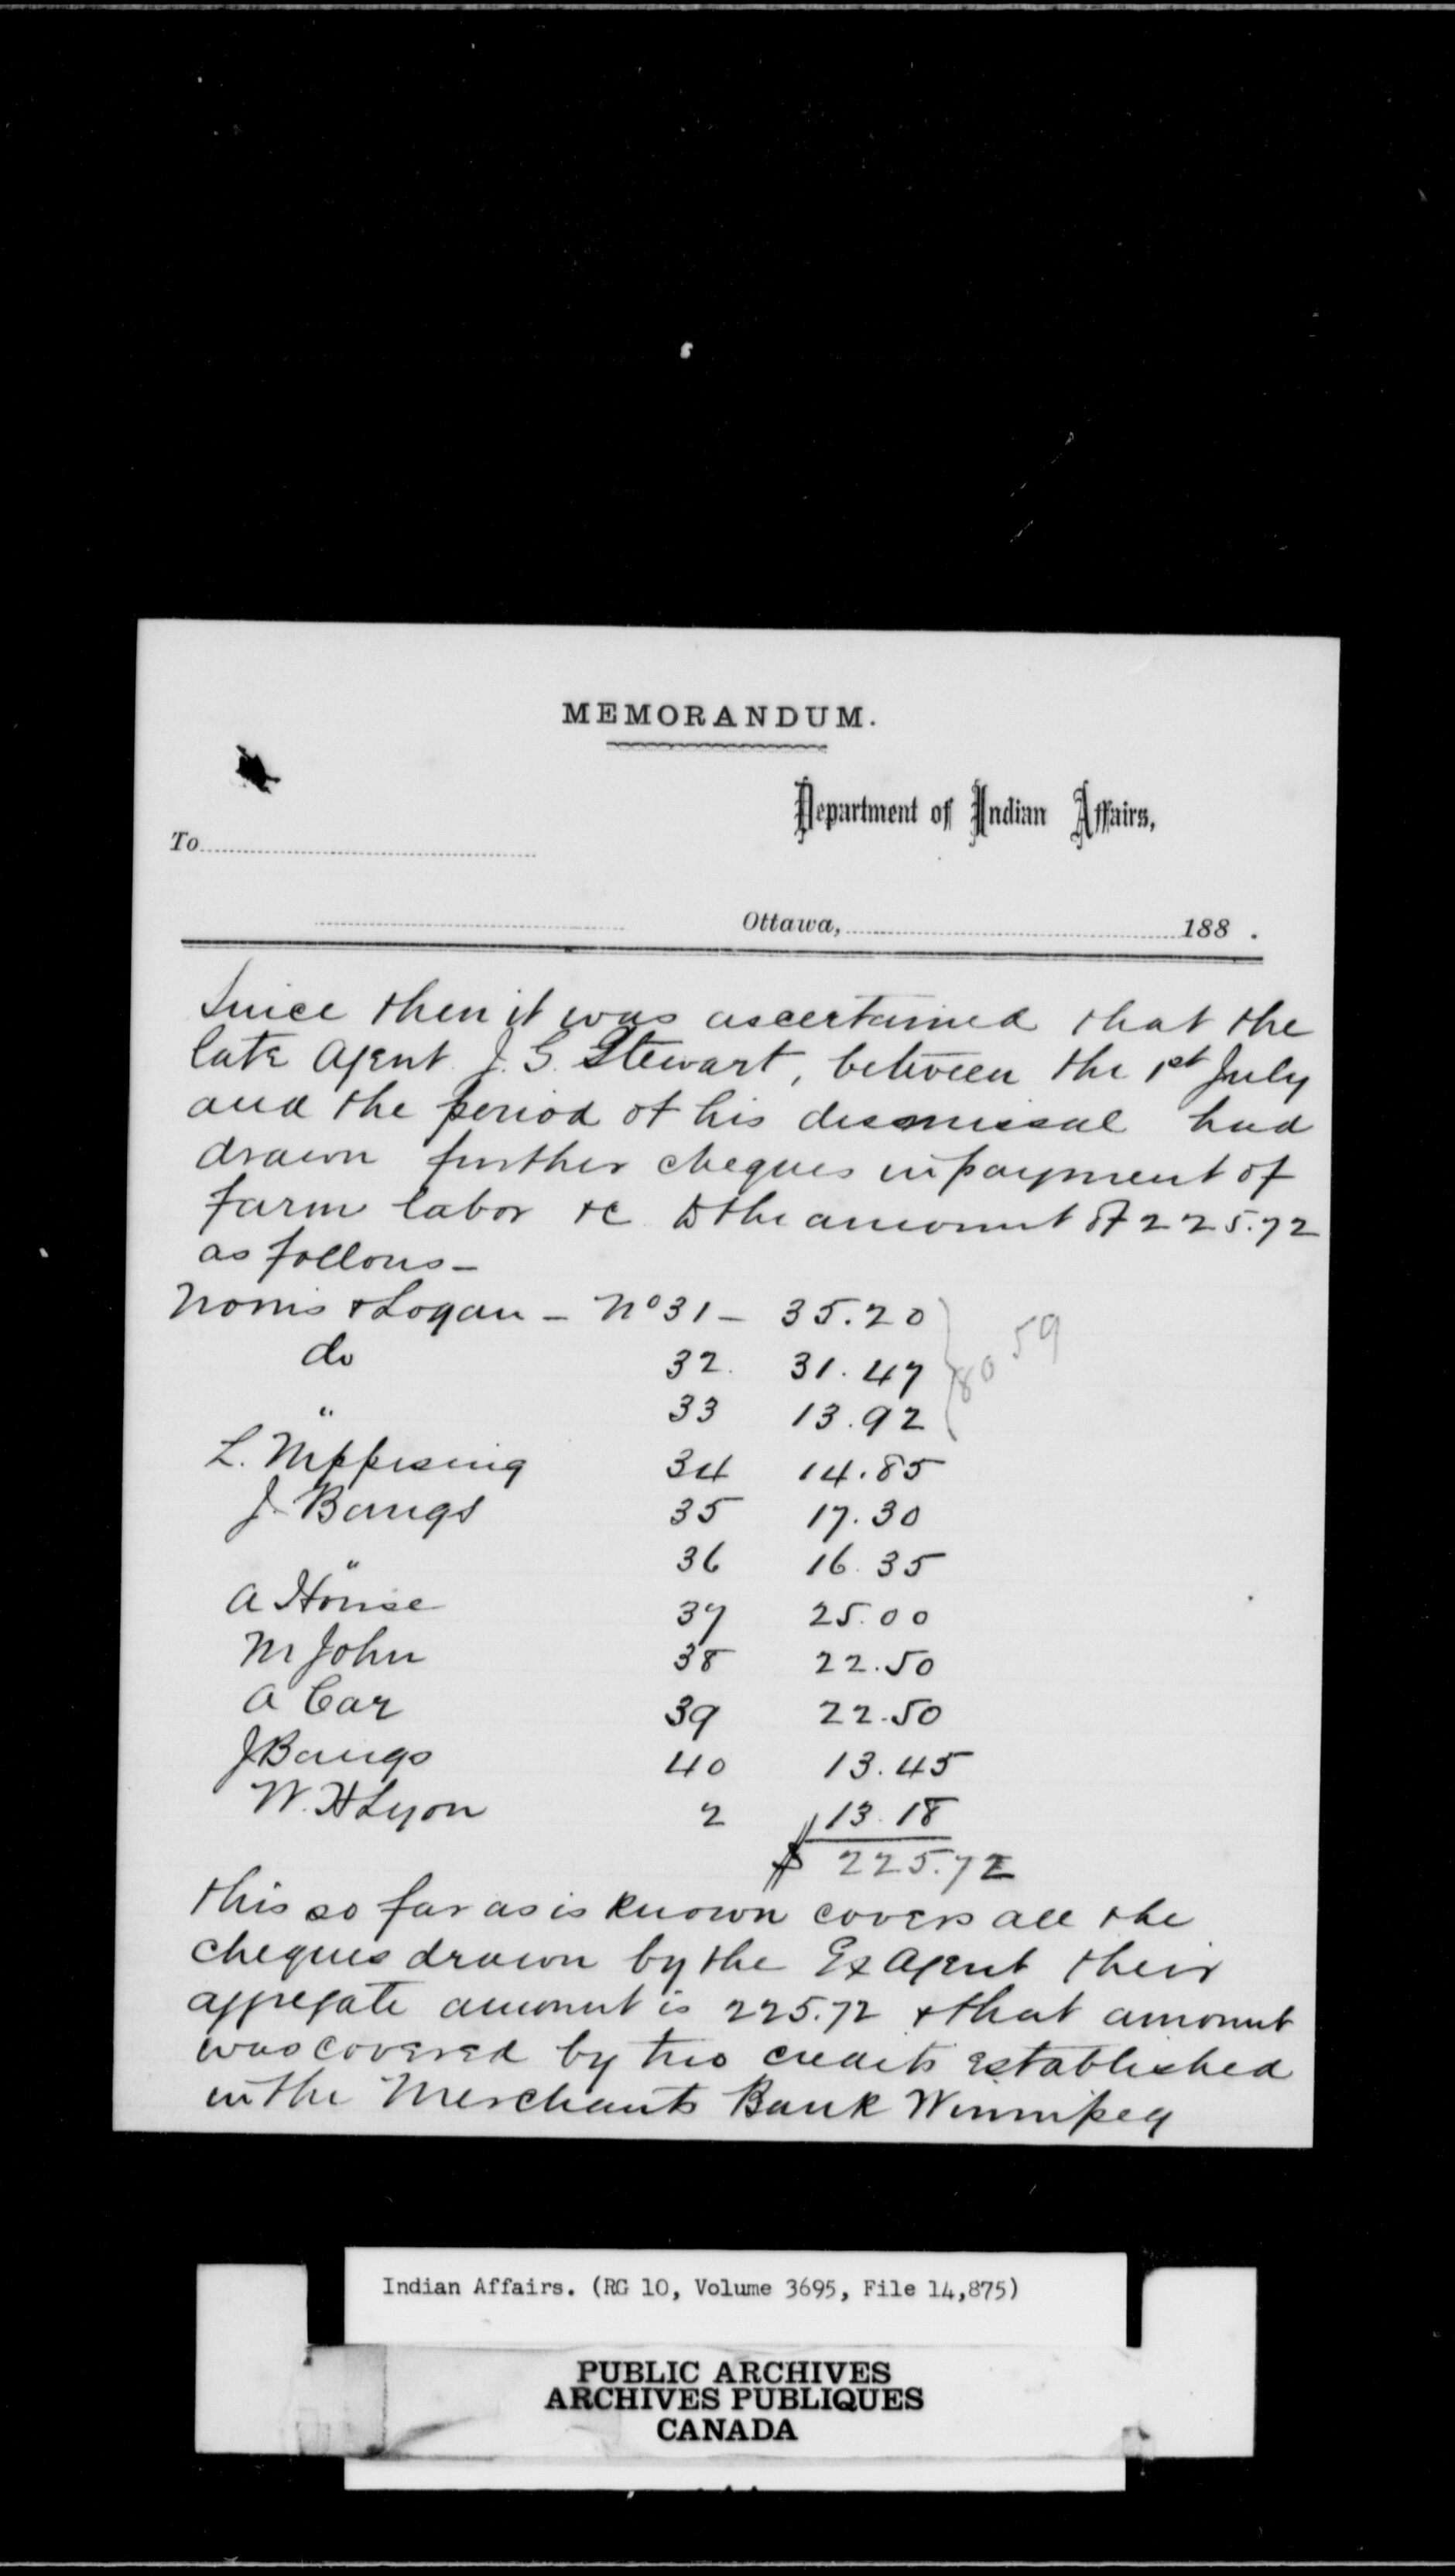 MEMORANDUM.
Department of Indian Affairs,
To
Ottawa, 188 .
Since then it was ascertained that the
late Agent J. G. Stewart, between the 1st July
and the period of his dismissal had
drawn further cheques in payment of
farm labor &c to the amount of 225.72
as follows -
Norris & Logan - No 31 - 35.20
do 32. 31.47
" 33 13.92
80 59
L. Nippising 34 14.85
J. Bangs 35 17.30
" 36 16.35
A House 37 25.00
M John 38 22.50
A Car 39 22.50
J Bangs 40 13.45
W. H Lyon 2 13.18
$ 225.72
this so far as is known covers all the
cheques drawn by the Ex Agent their
aggregate amount is 225.72 & that amount
was covered by two credits established
in the Merchants Bank Winnipeg
Indian Affairs. (RG 10, Volume 3695, File 14,875)
PUBLIC ARCHIVES
ARCHIVES PUBLIQUES
CANADA